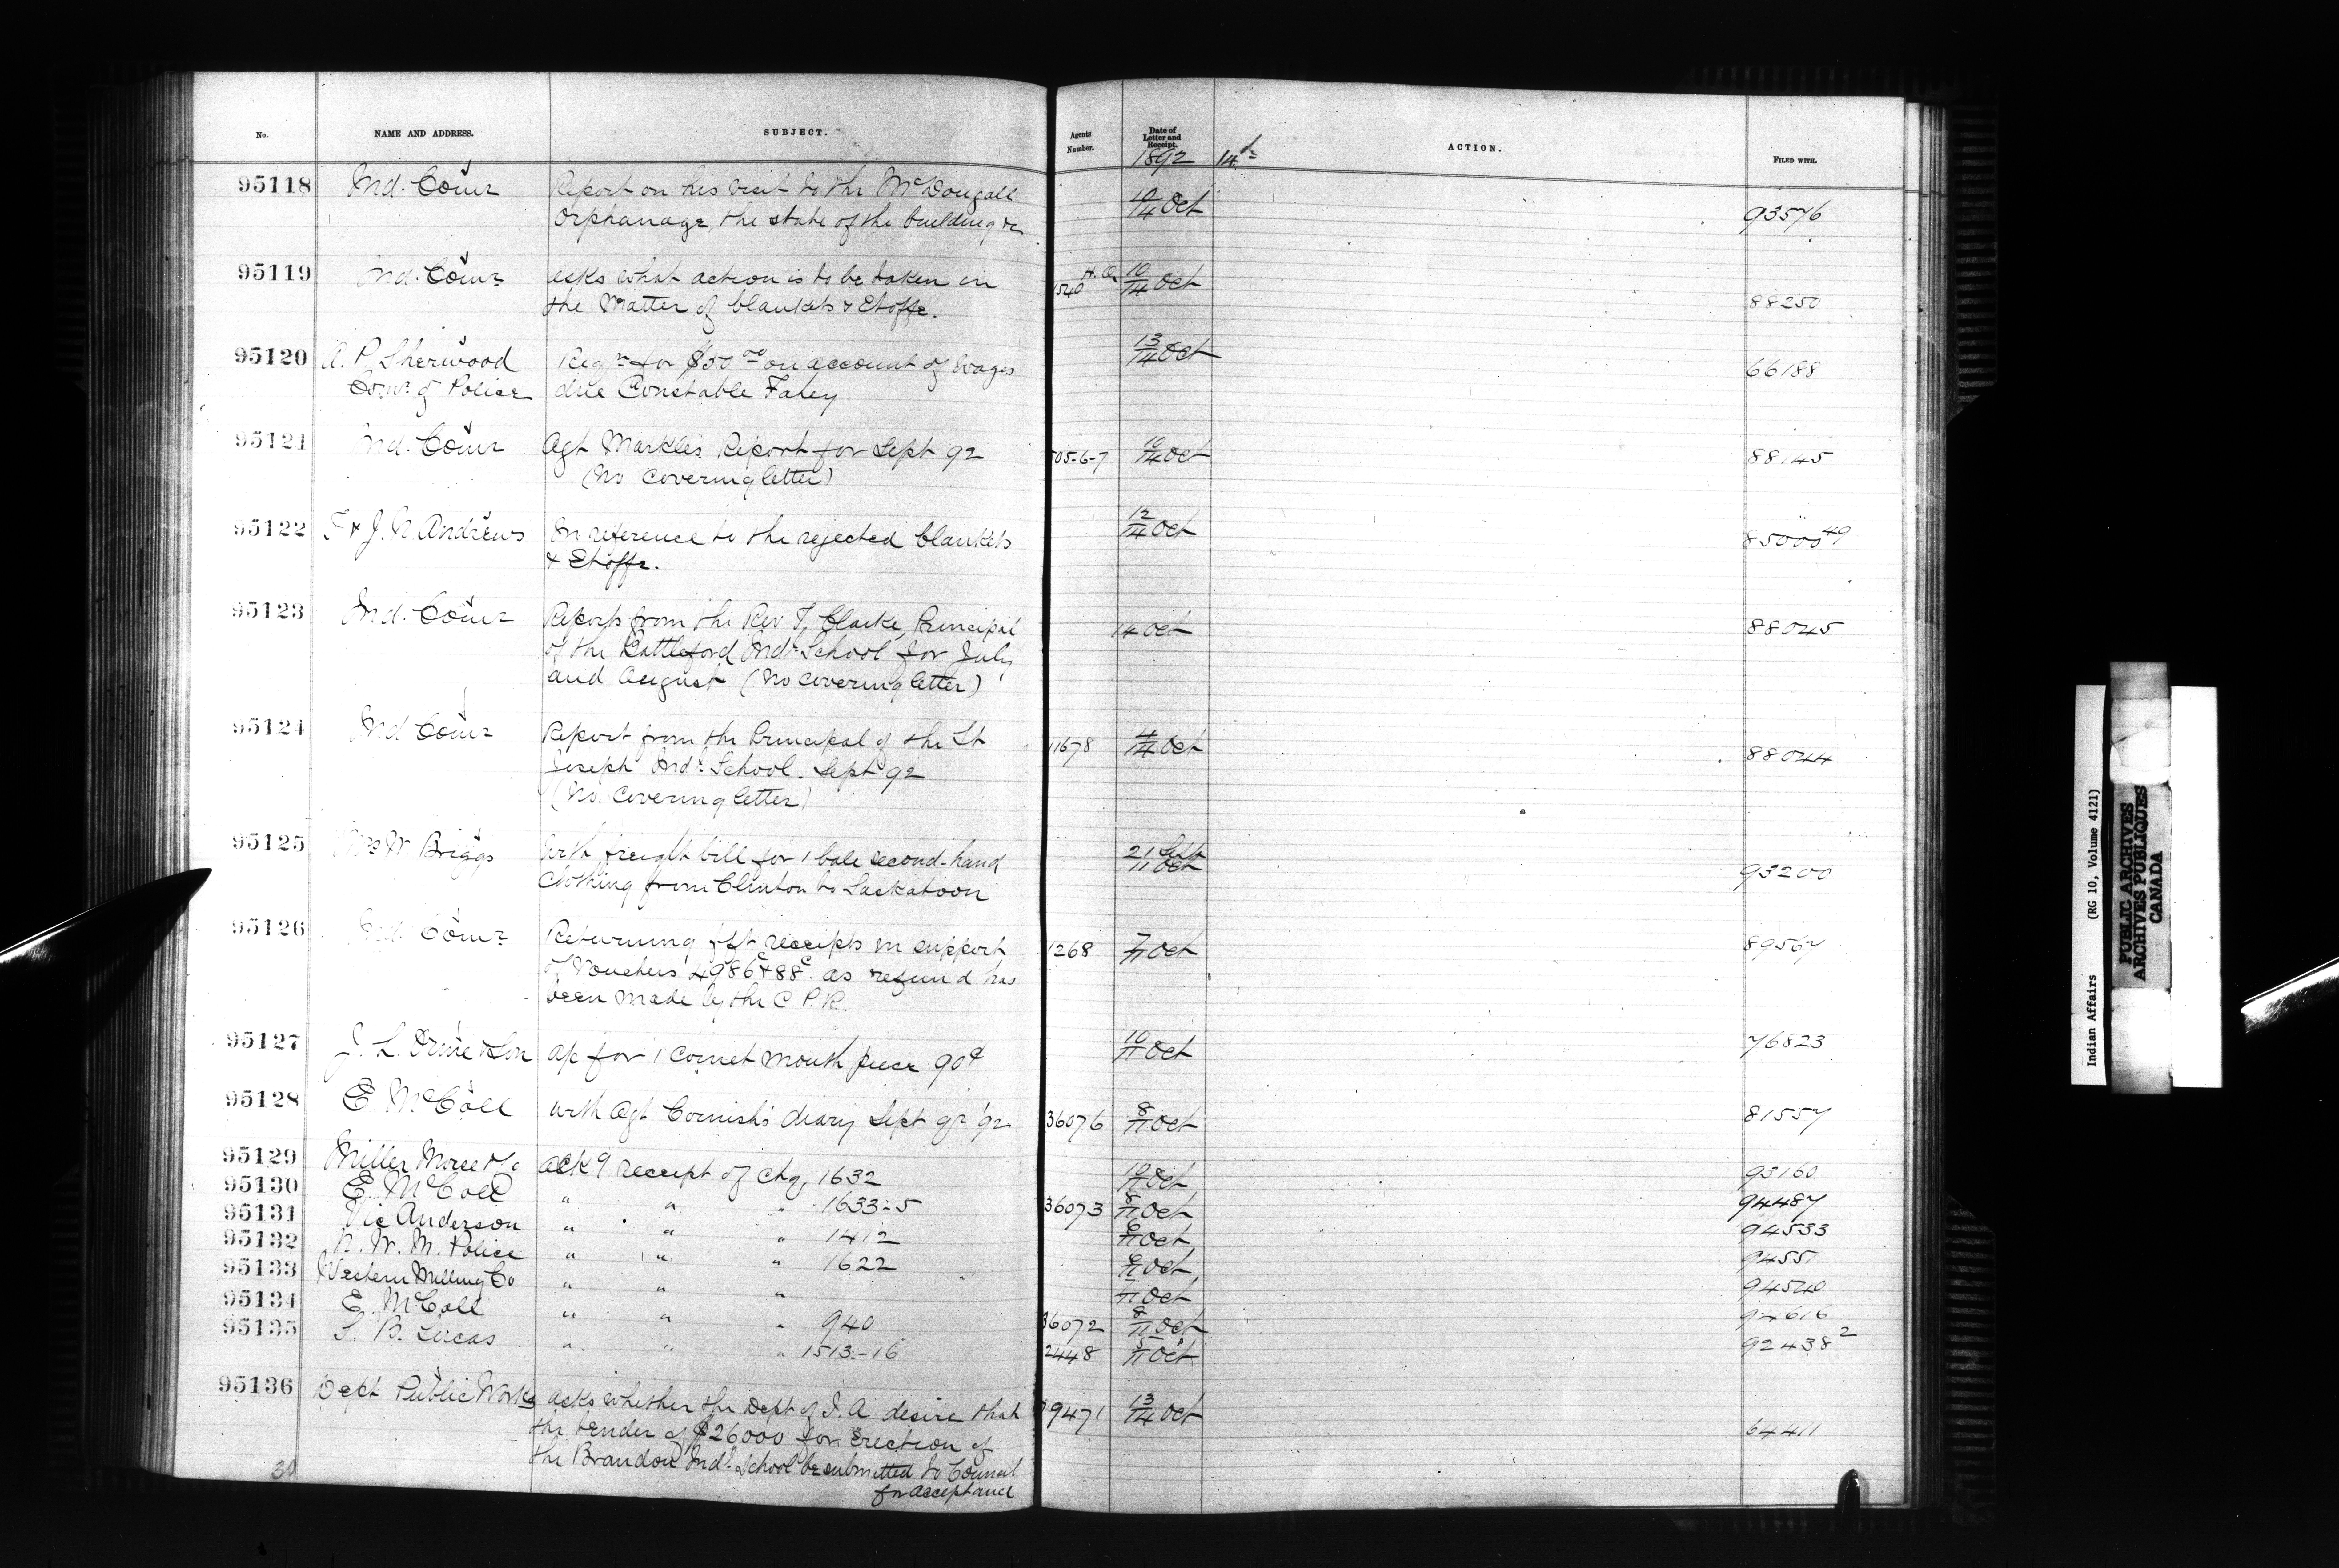 No. NAME AND ADDRESS. SUBJECT. Agents Number. Date of Letter and Receipt. ACTION. FILED WITH.
1892 14th
95118 Ind. Comr Report on his visit to the McDougall 10/14 Oct 93576
Orphanage, the state of the building &c
95119 Ind. Comr asks what action is to be taken in 1540 H.O. 10/14 Oct 88250
the matter of blankets & Etoffe.
95120 A. P. Sherwood Reqn for $50.00 on account of wages 13/14 Oct 66188
Comr of Police due Constable Fahey
95121 Ind. Comr Agt Markle's Report for Sept 92 505-6-7 10/14 Oct 88145
(No covering letter)
95122 T & J. N. Andrews In reference to the rejected blankets 12/14 Oct 85000 49
& Etoffe.
95123 Ind. Comr Reports from the Rev T. Clarke, Principal 14 Oct 88045
of the Battleford Indl School for July
and August (No covering letter)
95124 Ind Comr Report from the Principal of the St 11678 4/14 Oct 88044
Joseph Indl School. Sept 92
(No covering letter)
95125 Mrs W Briggs With freight bill for 1 bale second-hand 21 Sept/11 Oct 93200
clothing from Clinton to Saskatoon
95126 Ind. Comr Returning frt receipts in support 1268 7/11 Oct 89567
of Vouchers 4986c & 88c as refund has
been made by the C P. R.
95127 J. L. Orme & Son a/c for 1 Cornet mouth piece 90¢ 10/11 Oct 76823
95128 E McColl with Agt Cornish's diary Sept 92 36076 8/11 Oct 81557
95129 Miller Morse & Co ackg receipt of chq. 1632 10/11 Oct 93160
95130 E. McColl " " " 1633-5 36073 8/11 Oct 94487
95131 Vic Anderson " " " 1412 6/11 Oct 94533
95132 N. W. M. Police " " " 1622 6/11 Oct 94551
95133 Western Milling Co " " " 7/11 Oct 94540
95134 E. McColl " " " 940 36072 8/11 Oct 94616
95135 S. B. Lucas " " " 1513-16 2448 5/11 Oct 92438 2
95136 Dept Public Works asks whether the Dept of I. A desire that 9471 13/14 Oct 64411
the tender of $26000 for erection of
the Brandon Indl School be submitted to Council
for acceptance
30
Indian Affairs (RG 10, Volume 4121)
PUBLIC ARCHIVES
ARCHIVES PUBLIQUES
CANADA